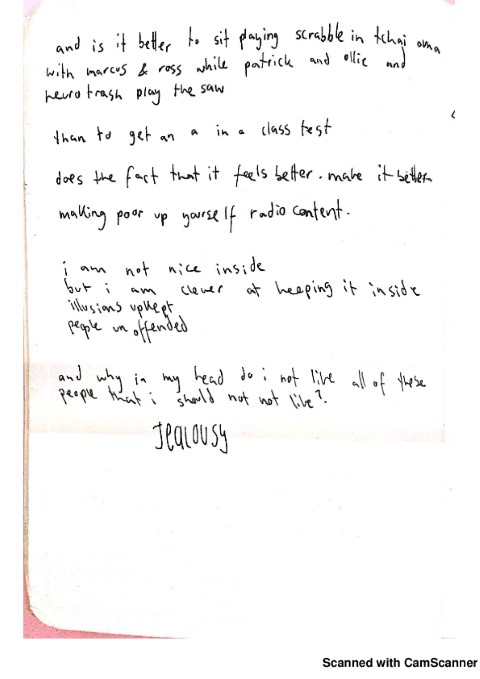 and is it better to sit playing scrabble in tchai oma
with marcus & ross while patrick and ollie and
neurotrash play the saw
than to get an a in a class test
does the fact that it feels better. make it better
making poor up yourself radio content.
i am not nice inside
but i am clever at keeping it inside
illusions upkept
people un offended
and why in my head do i not like all of these
people that i should not not like?
Jealousy
Scanned with CamScanner